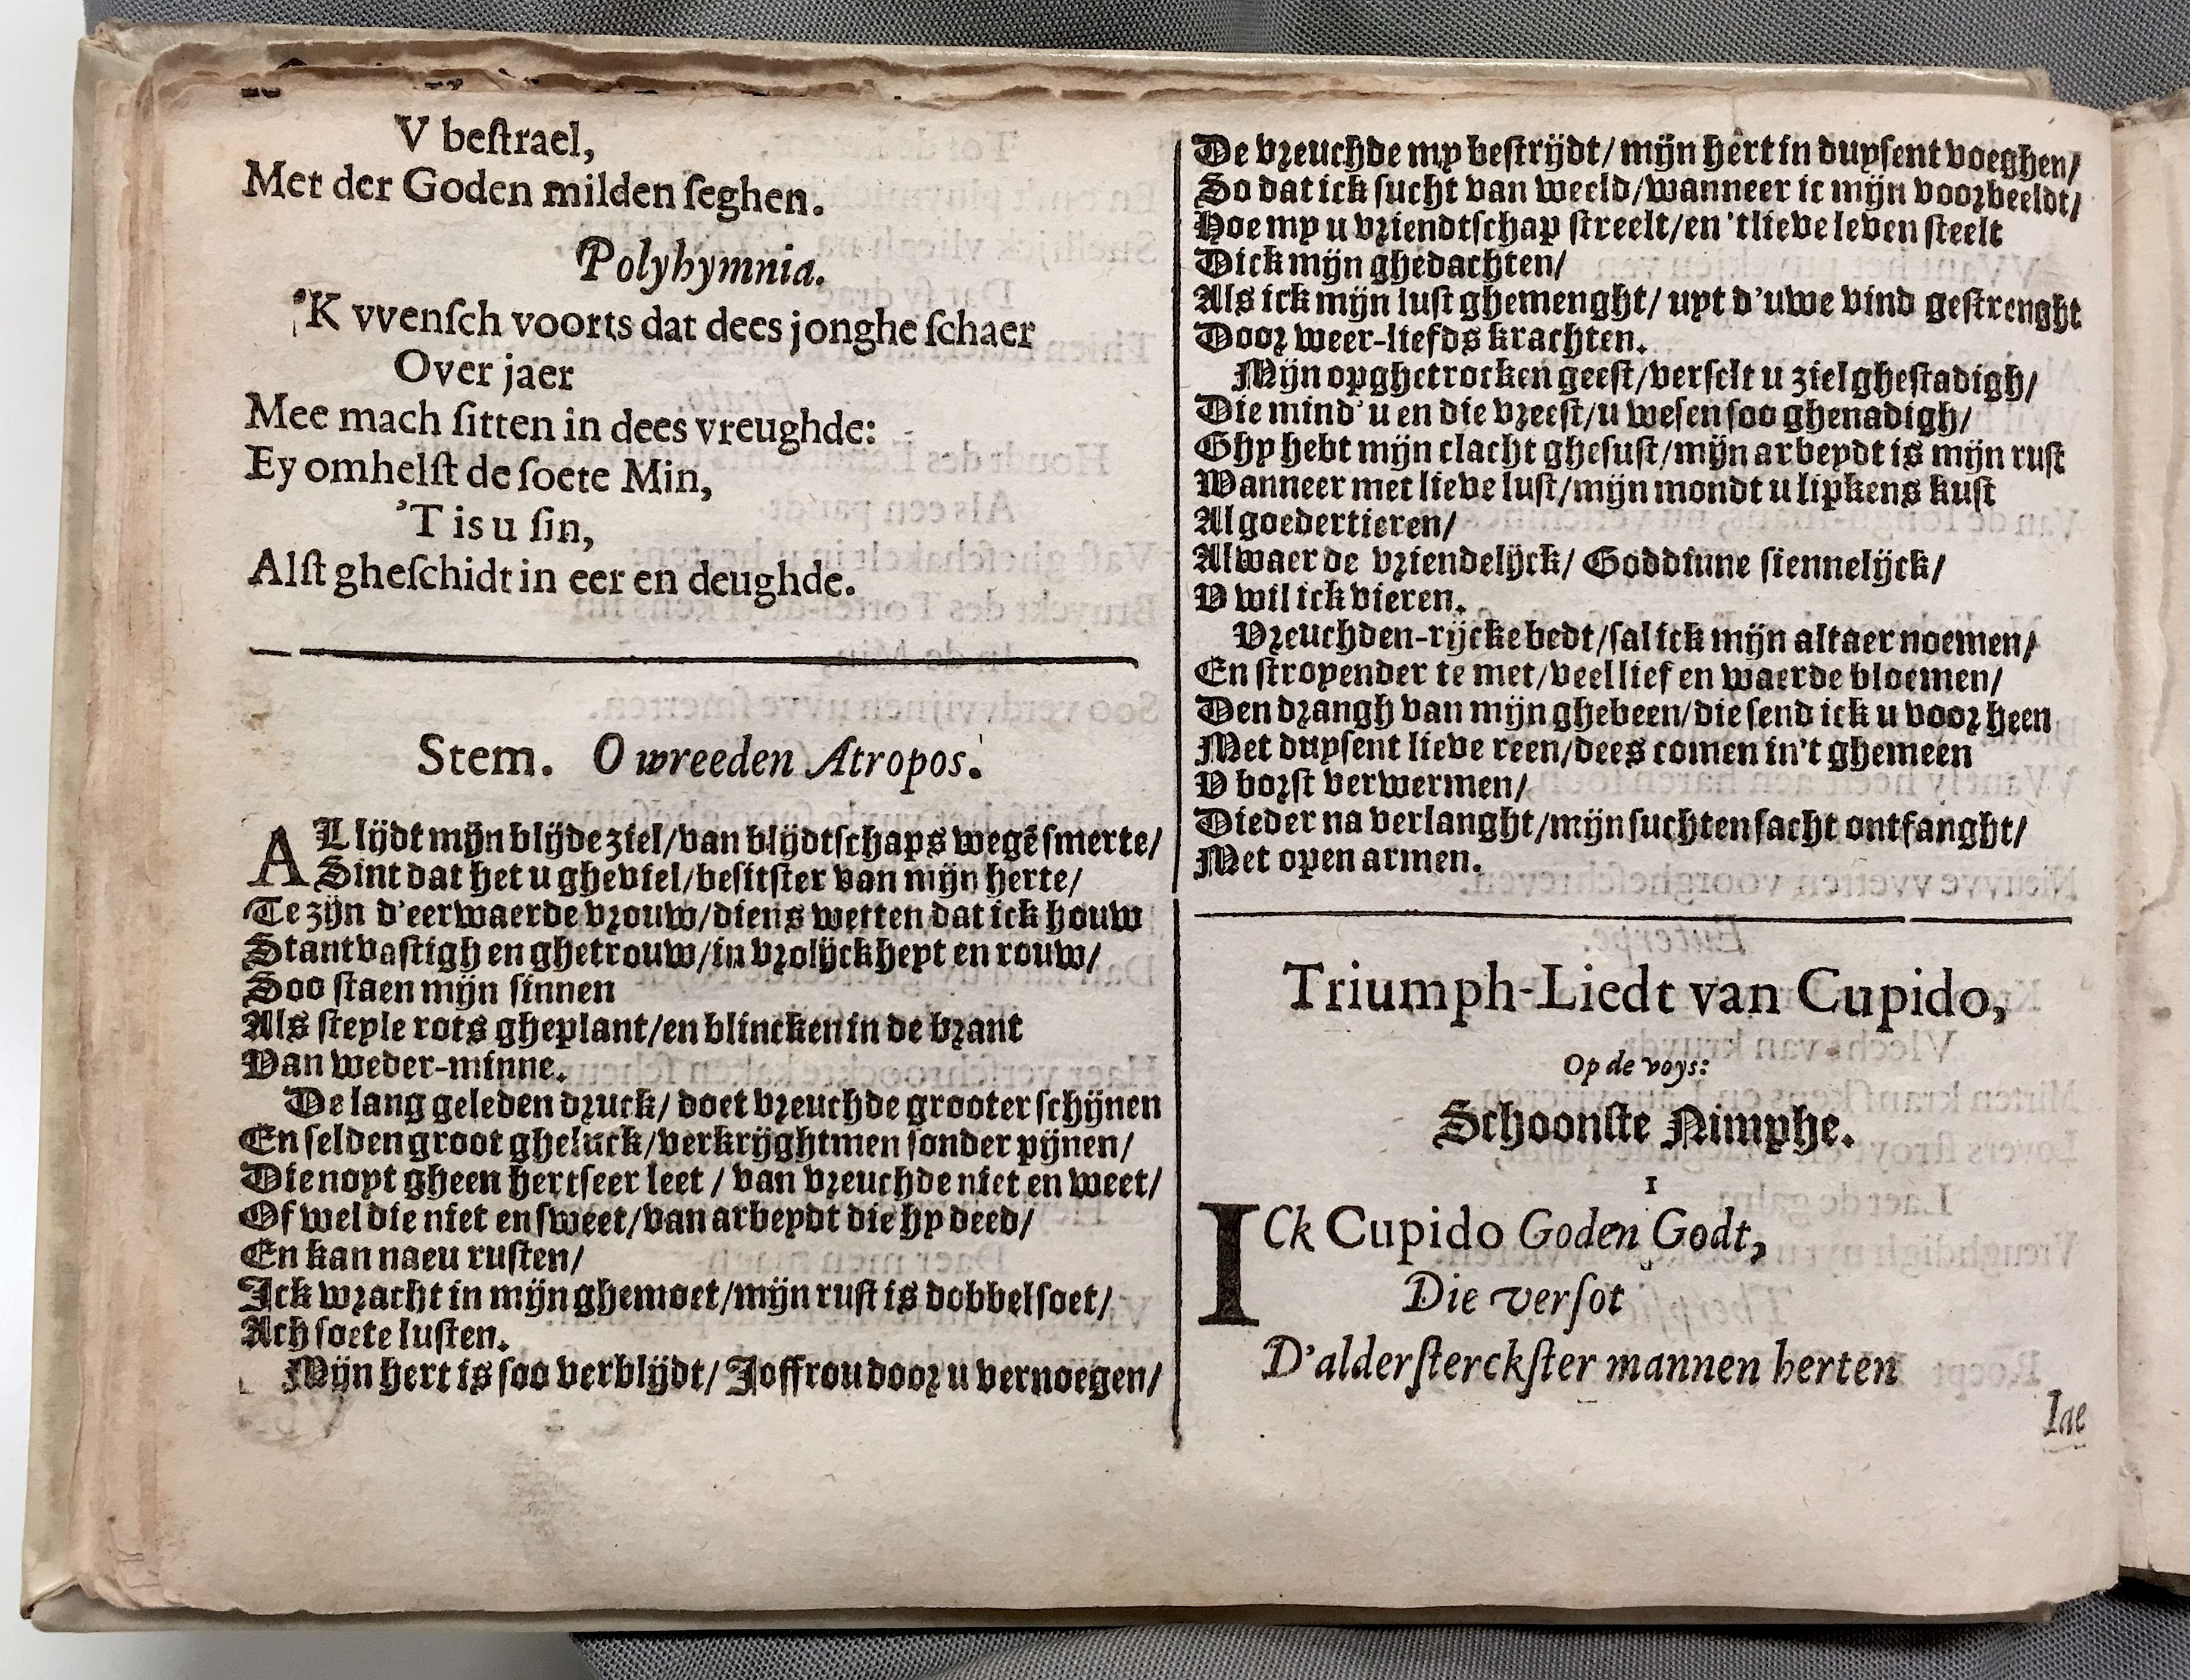 V beſtrael,
Met der Goden milden ſeghen.
Polyhymnia.
'K vvenſch voorts dat dees jonghe ſchaer
Over jaer
Mee mach ſitten in dees vreughde:
Ey omhelſt de ſoete Min,
'T is u ſin,
Alſt gheſchidt in eer en deughde.
Stem. O wreeden Atropos.
AL lijdt mijn blijde ziel/van blijdtſchaps wegē ſmerte/
Sint dat het u gheviel/beſitſter van mijn herte/
Te zijn d'eerwaerde vrouw/diens wetten dat ick houw
Stantvaſtigh en ghetrouw/in vrolijckheyt en rouw/
Soo ſtaen mijn ſinnen
Als ſteyle rots gheplant/en blincken in de brant
Van weder-minne.
De lang geleden druck/ doet vreuchde grooter ſchijnen
En ſelden groot gheluck/verkrijghtmen ſonder pijnen/
Die noyt gheen hertſeer leet / van vreuchde niet en weet/
Of wel die niet en ſweet/van arbeydt die hy deed/
En kan naeu ruſten/
Ick wracht in mijn ghemoet/mijn ruſt is dobbel ſoet/
Ach ſoete luſten.
Mijn hert is ſoo verblijdt/ Joffrou door u vernoegen/
De vreuchde my beſtrijdt/ mijn hert in duyſent voeghen/
So dat ick ſucht van weeld/wanneer ic mijn voorbeeldt/
Hoe my u vriendtſchap ſtreelt/en 'tlieve leven ſteelt
Dick mijn ghedachten/
Als ick mijn luſt ghemenght/ uyt d'uwe vind geſtrenght
Door weer-liefds krachten.
Mijn opghetrocken geeſt/verſelt u ziel gheſtadigh/
Die mind' u en die vreeſt/u weſen ſoo ghenadigh/
Ghy hebt mijn clacht gheſuſt/mijn arbeydt is mijn ruſt
Wanneer met lieve luſt/mijn mondt u lipkens kuſt
Al goedertieren/
Alwaer de vriendelijck/ Goddinne ſiennelijck/
V wil ick vieren.
Vreuchden-rijcke bedt/ſal ick mijn altaer noemen/
En ſtroyender te met/veel lief en waerde bloemen/
Den drangh van mijn ghebeen/die ſend ick u voor heen
Met duyſent lieve reen/dees comen in't ghemeen
V borſt verwermen/
Die der na verlanght/mijn ſuchten ſacht ontfanght/
Met open armen.
Triumph-Liedt van Cupido,
Op de voys:
Schoonſte Nimphe.
1
ICk Cupido Goden Godt,
Die verſot
D'alderſterckſter mannen herten
Iae